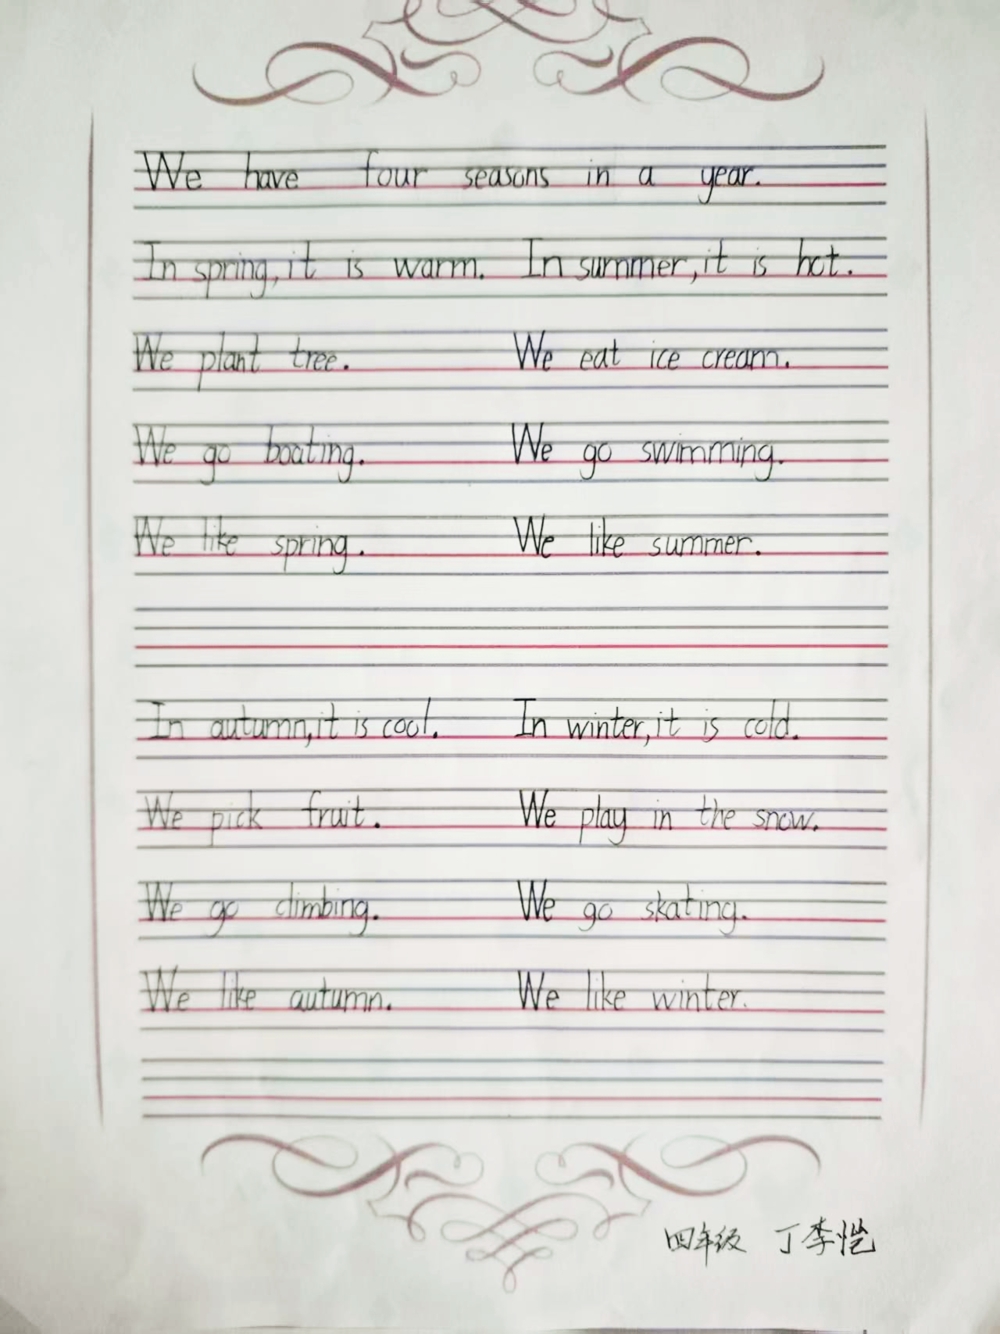 We have four seasons in a year.
In spring,it is warm. In summer,it is hot.
We plant tree. We eat ice cream.
We go boating. We go swimming.
We like spring. We like summer.
In autumn,it is cool. In winter,it is cold.
We pick fruit. We play in the snow.
We go climbing. We go skating.
We like autumn. We like winter.
四年级 丁李恺